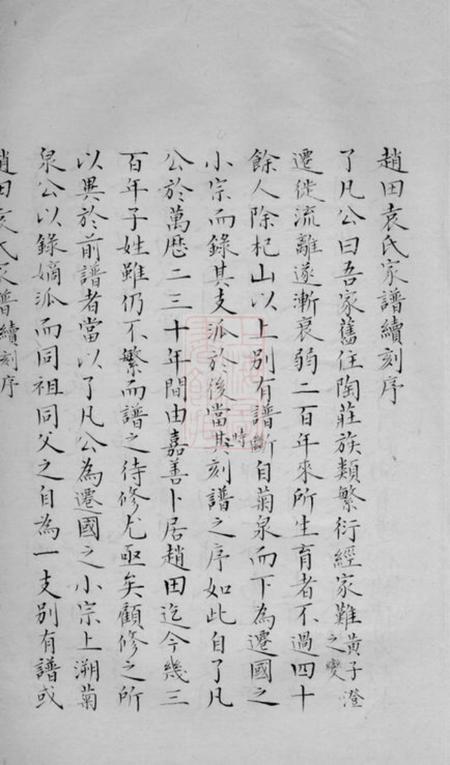 趙田袁氏家譜續刻序
了凡公曰吾家舊住陶莊族類繁衍經家難黃子澄之變
遷徙流離遂漸衰弱二百年來所生育者不過四十
餘人除杞山以上別有譜斷自菊泉而下為遷國之
小宗而錄其支派於後當時其刻譜之序如此自了凡
公於萬歷二三十年間由嘉善卜居趙田迄今幾三
百年子姓雖仍不繁而譜之待修尤亟矣顧修之所
以異於前譜者當以了凡公為遷國之小宗上溯菊
泉公以錄嫡派而同祖同父之自為一支別有譜或
趙田袁氏家譜續刻序